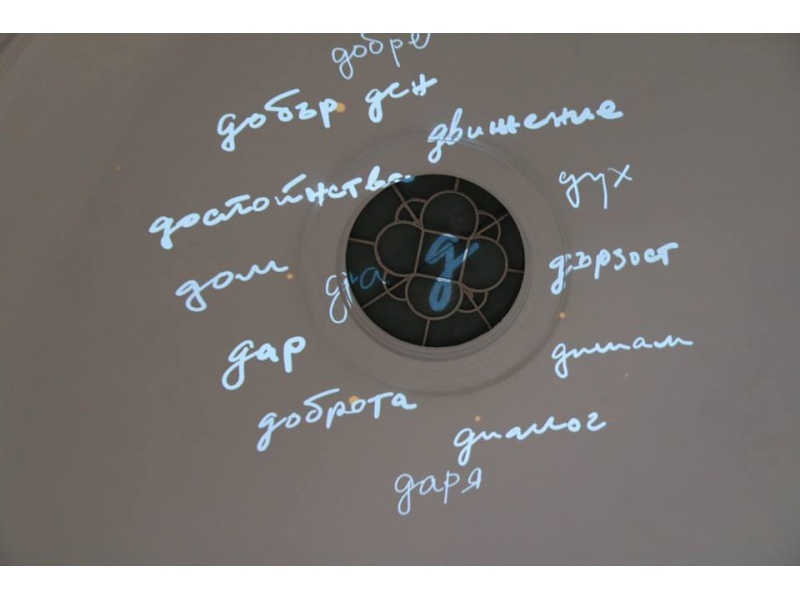 добре
добър ден
движение
достойнство
дух
дом
да
д
дързост
дар
дишам
доброта
диалог
даря